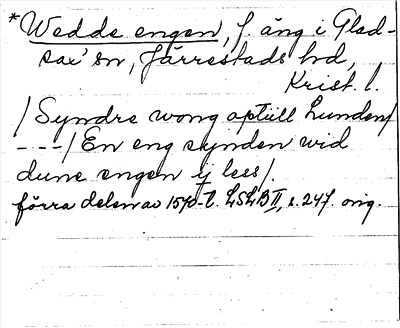 *Wedde engen, f. äng i Glad-
sax' sn, Järrestads hd,
Krist. l.
/Syndre wong optill Lunden/
---/En eng synden wid
dune engen ij less/.
förra delen av 1570-t. LSLB II, s. 247. orig.